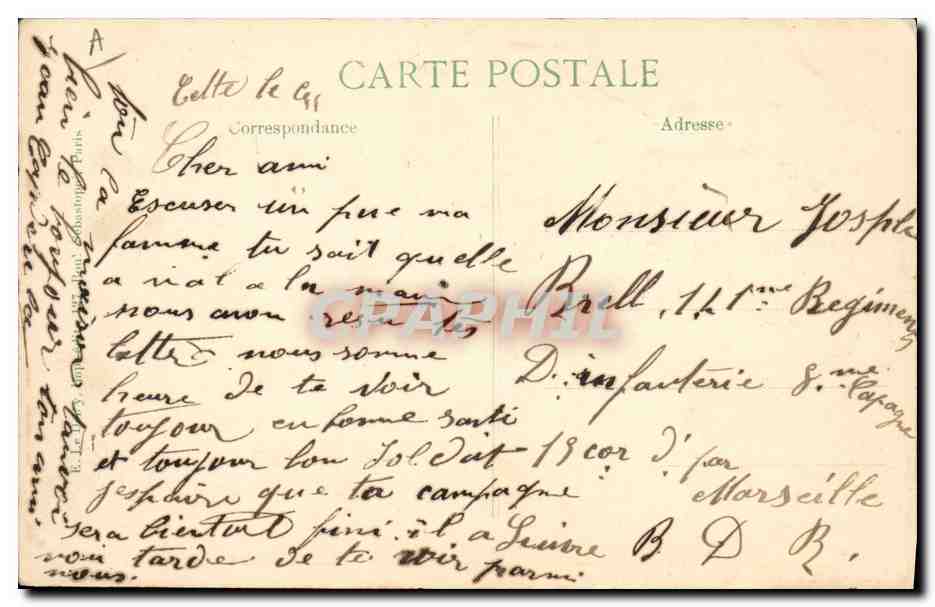 CARTE POSTALE
Cette le
Correspondance
Adresse
Cher ami
Escuser un pue ma
famme tu sait quelle
a mal a la main
nous avon resu tes
lettre nous somme
heure de te voir
toujour en bonne santi
et toujour bon Soldat
jespaire que ta campagne
sera bientort fini il a
nou tarde de te voir parmi
nous.
Monsieur Josple
Brell 141me Regiment
D. infanterie 8me
Capagne
15 cor d'
par
Marseille
B D R.
A
bien le bonjour ton ami
Jean
E. Le Deley, Imp., 127, Boul. Sébastopol, Paris
CPAPHIL